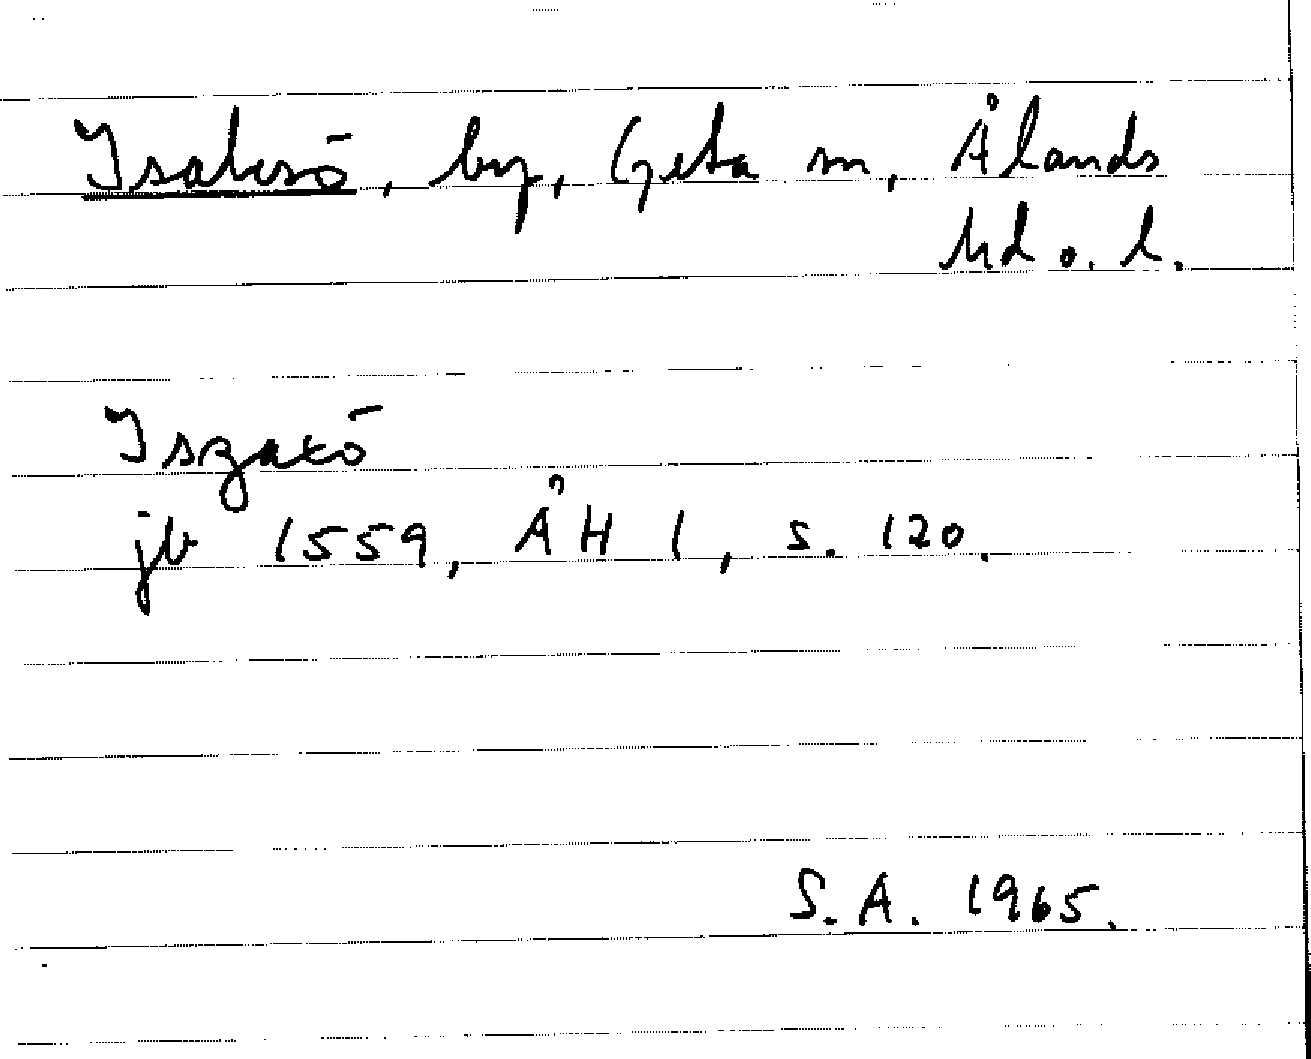 Isaksö, by, Geta sn, Ålands
hd o. l.
Iszaxö
jb 1559, ÅH 1, s. 120.
S.A. 1965.